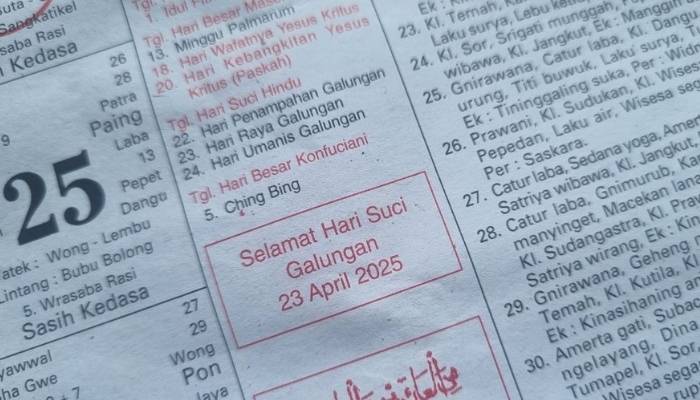 Sangkatikel
saba Rasi
Kedasa
26
28
Patra
Paing
9
Laba
13
25
Pepet
Dangu
Wong - Lembu
Lintang : Bubu Bolong
5. Wrasaba Rasi
Sasih Kedasa
27
29
Wong
Pon
Gwe
1. Idul
Tgl. Hari Besar
13. Minggu Palmarum
18. Hari Wafatnya Yesus Kritus
20. Hari Kebangkitan Yesus
Kritus (Paskah)
Tgl. Hari Suci Hindu
22. Hari Penampahan Galungan
23. Hari Raya Galungan
24. Hari Umanis Galungan
Tgl. Hari Besar Konfuciani
5. Ching Bing
Selamat Hari Suci
Galungan
23 April 2025
23. Kl. Temah,
Laku surya, Lebu
24. Kl. Sor, Srigati munggah,
wibawa, Kl. Jangkut, Ek :
25. Gnirawana, Catur laba, Kl. Dangu
urung, Titi buwuk, Laku surya,
Ek : Tininggaling suka, Per :
26. Prawani, Kl. Sudukan, Kl.
Pepedan, Laku air, Wisesa
Per : Saskara.
27. Catur laba, Sedana yoga,
Satriya wibawa, Kl. Jangkut,
28. Catur laba, Gnimurub,
manyinget, Macekan
Kl. Sudangastra, Kl.
Satriya wirang, Ek :
29. Gnirawana, Geheng
Temah, Kl. Kutila, Kl.
Ek : Kinasihaning
30. Amerta gati,
ngelayang,
Tumapel, Kl. Sor,
Wisesa